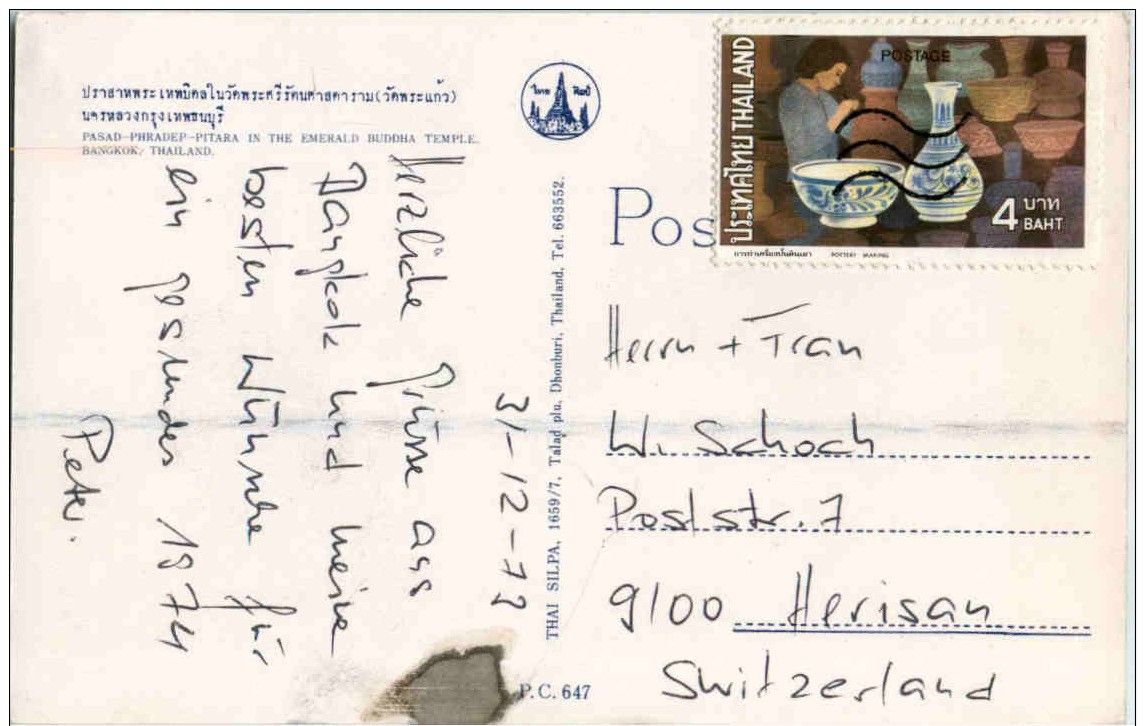 ปราสาทพระเทพบิดลในวัดพระศรีรัตนศาสดาราม(วัดพระแก้ว)
นครหลวงกรุงเทพธนบุรี
PASAD-PHRADEP-PITARA IN THE EMERALD BUDDHA TEMPLE.
BANGKOK, THAILAND.
ไทย ศิลป์
31-12-73
Herzliche Grüsse aus
Bangkok und meine
besten Wünsche für
ein gesundes 1974
Peter.
THAI SILPA, 1659/7, Talad plu, Dhonburi, Thailand, Tel. 663552.
P.C. 647
Pos
POSTAGE
ประเทศไทย THAILAND
4 บาท
BAHT
การทำเครื่องปั้นดินเผา POTTERY MAKING
Herrn + Frau
W. Schoch
Poststr. 7
9100 Herisau
Switzerland